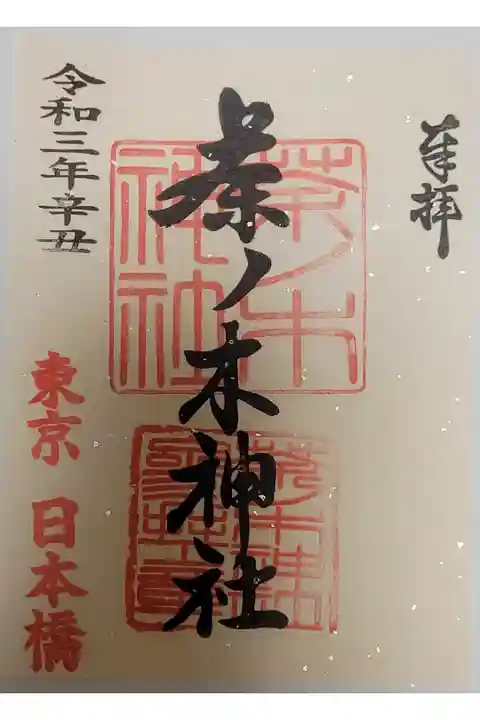 奉拝
茶ノ木神社
茶ノ木
神社
令和三年辛丑
東京 日本橋